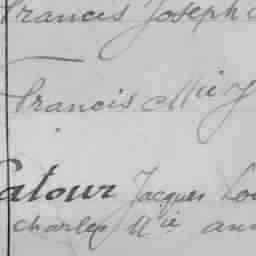 Francis Joseph
Francis Mie
Latour Jacques Lou
Charles Mie ann